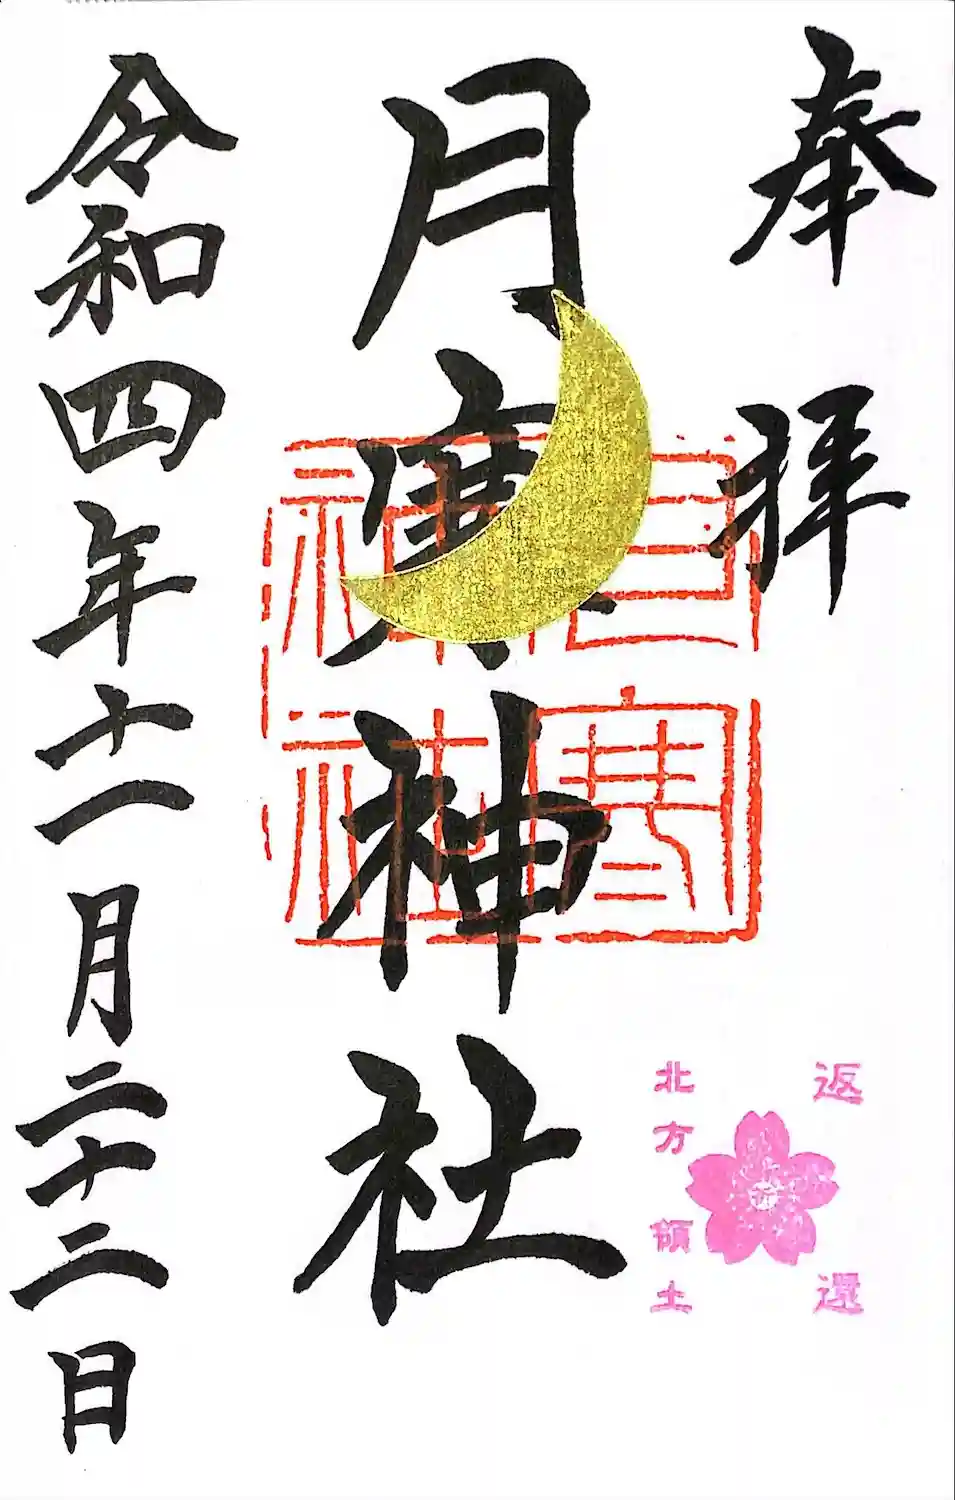 奉拝
月寒神社
月寒
神社
返還
北方領土
令和四年十一月二十二日